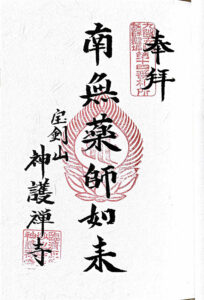 奉拝
南無薬師如来
宝剣山
神護禅寺